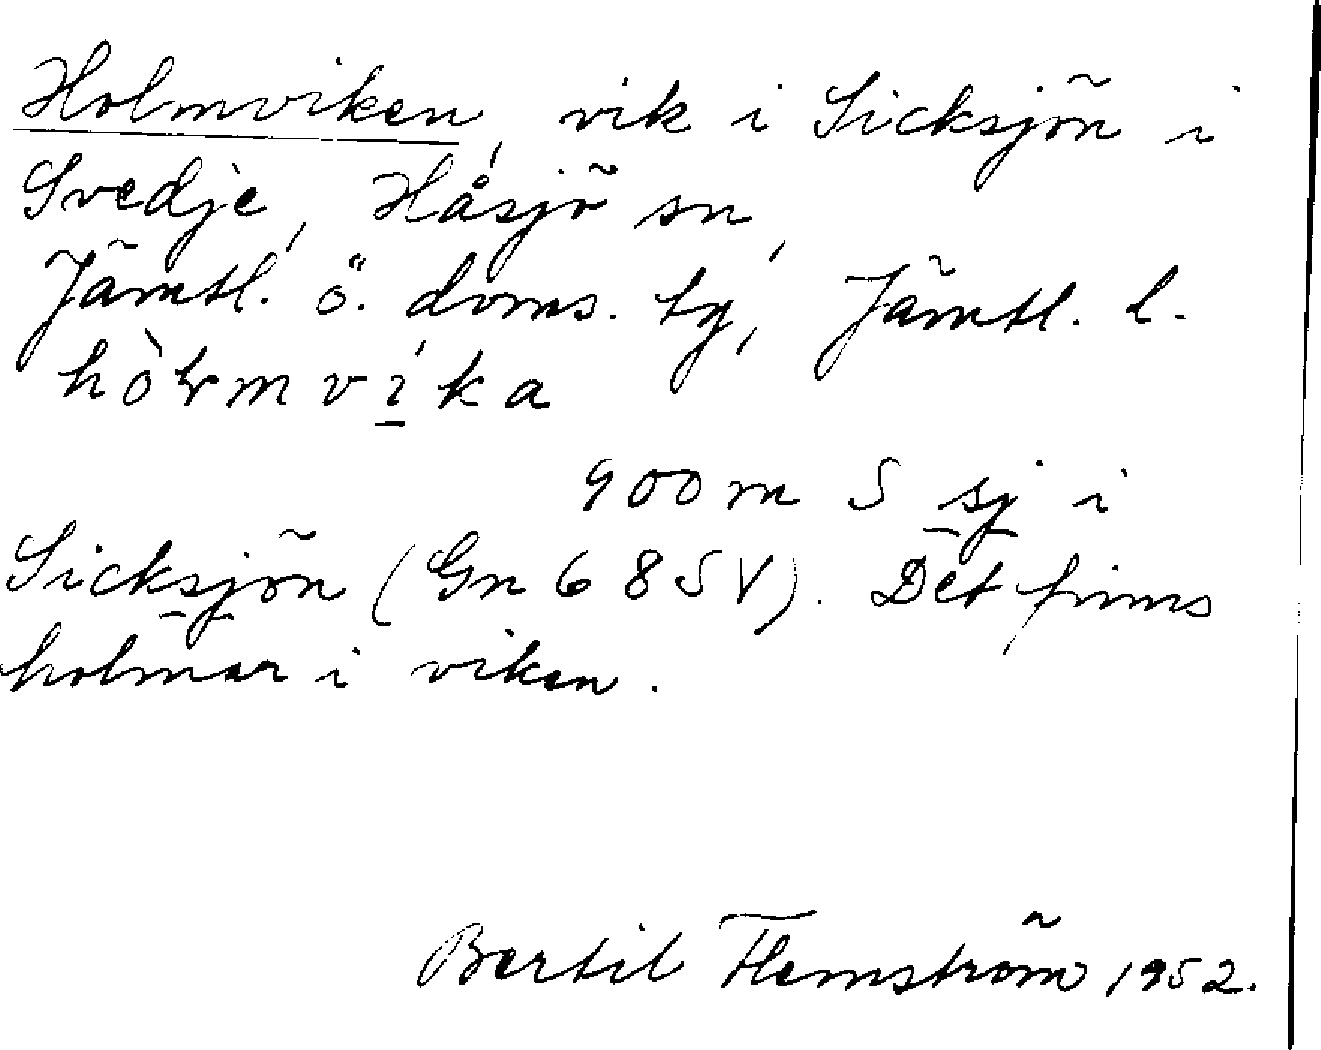 Holmviken, vik i Sicksjön i
Svedje, Håsjö sn,
Jämtl. ö. doms. tg, Jämtl. l.
900 m S sj i
Sicksjön (Gn 68 SV). Det finns
holmar i viken.
Bertil Flemström 1952.